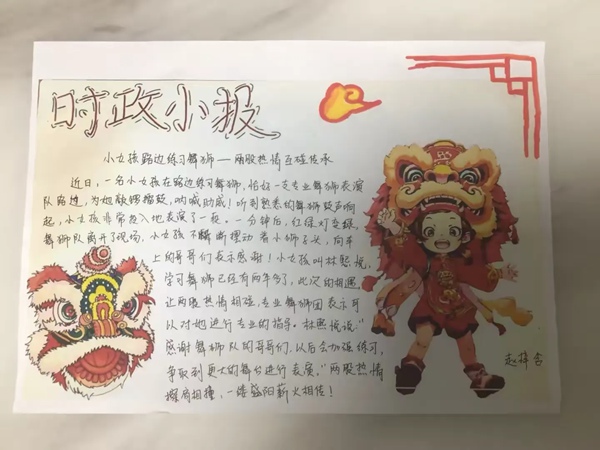 时政小报
小女孩路边练习舞狮——两股热情互碰传承
近日，一名小女孩在路边练习舞狮，恰好一支专业舞狮表演
队路过，为她敲锣擂鼓，呐喊助威！听到熟悉的舞狮鼓声响
起，小女孩非常投入地表演了一段。一分钟后，红绿灯变绿，
舞狮队离开了现场，小女孩不断摆动着小狮子头，向车
上的哥哥们表示感谢！小女孩叫林熙悦，
学习舞狮已经有两年多了，此次的相遇
让两股热情相碰，专业舞狮团表示可
以对她进行专业的指导，林熙悦说："
感谢舞狮队的哥哥们，以后会加强练习，
争取到更大的舞台进行表演。"两股热情
擦肩相撞，一缕 薪火相传！
赵梓含